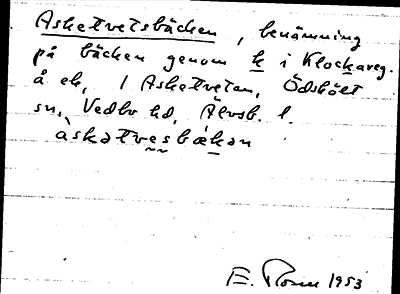 Asketvetsbäcken, benämning
på bäcken genom k i Klockareg.
å ek, 1 Asketveten, Ödsbölt
sn, Vedbo hd, Älvsb. l.
àskətvesbákən
E. Rosen 1953